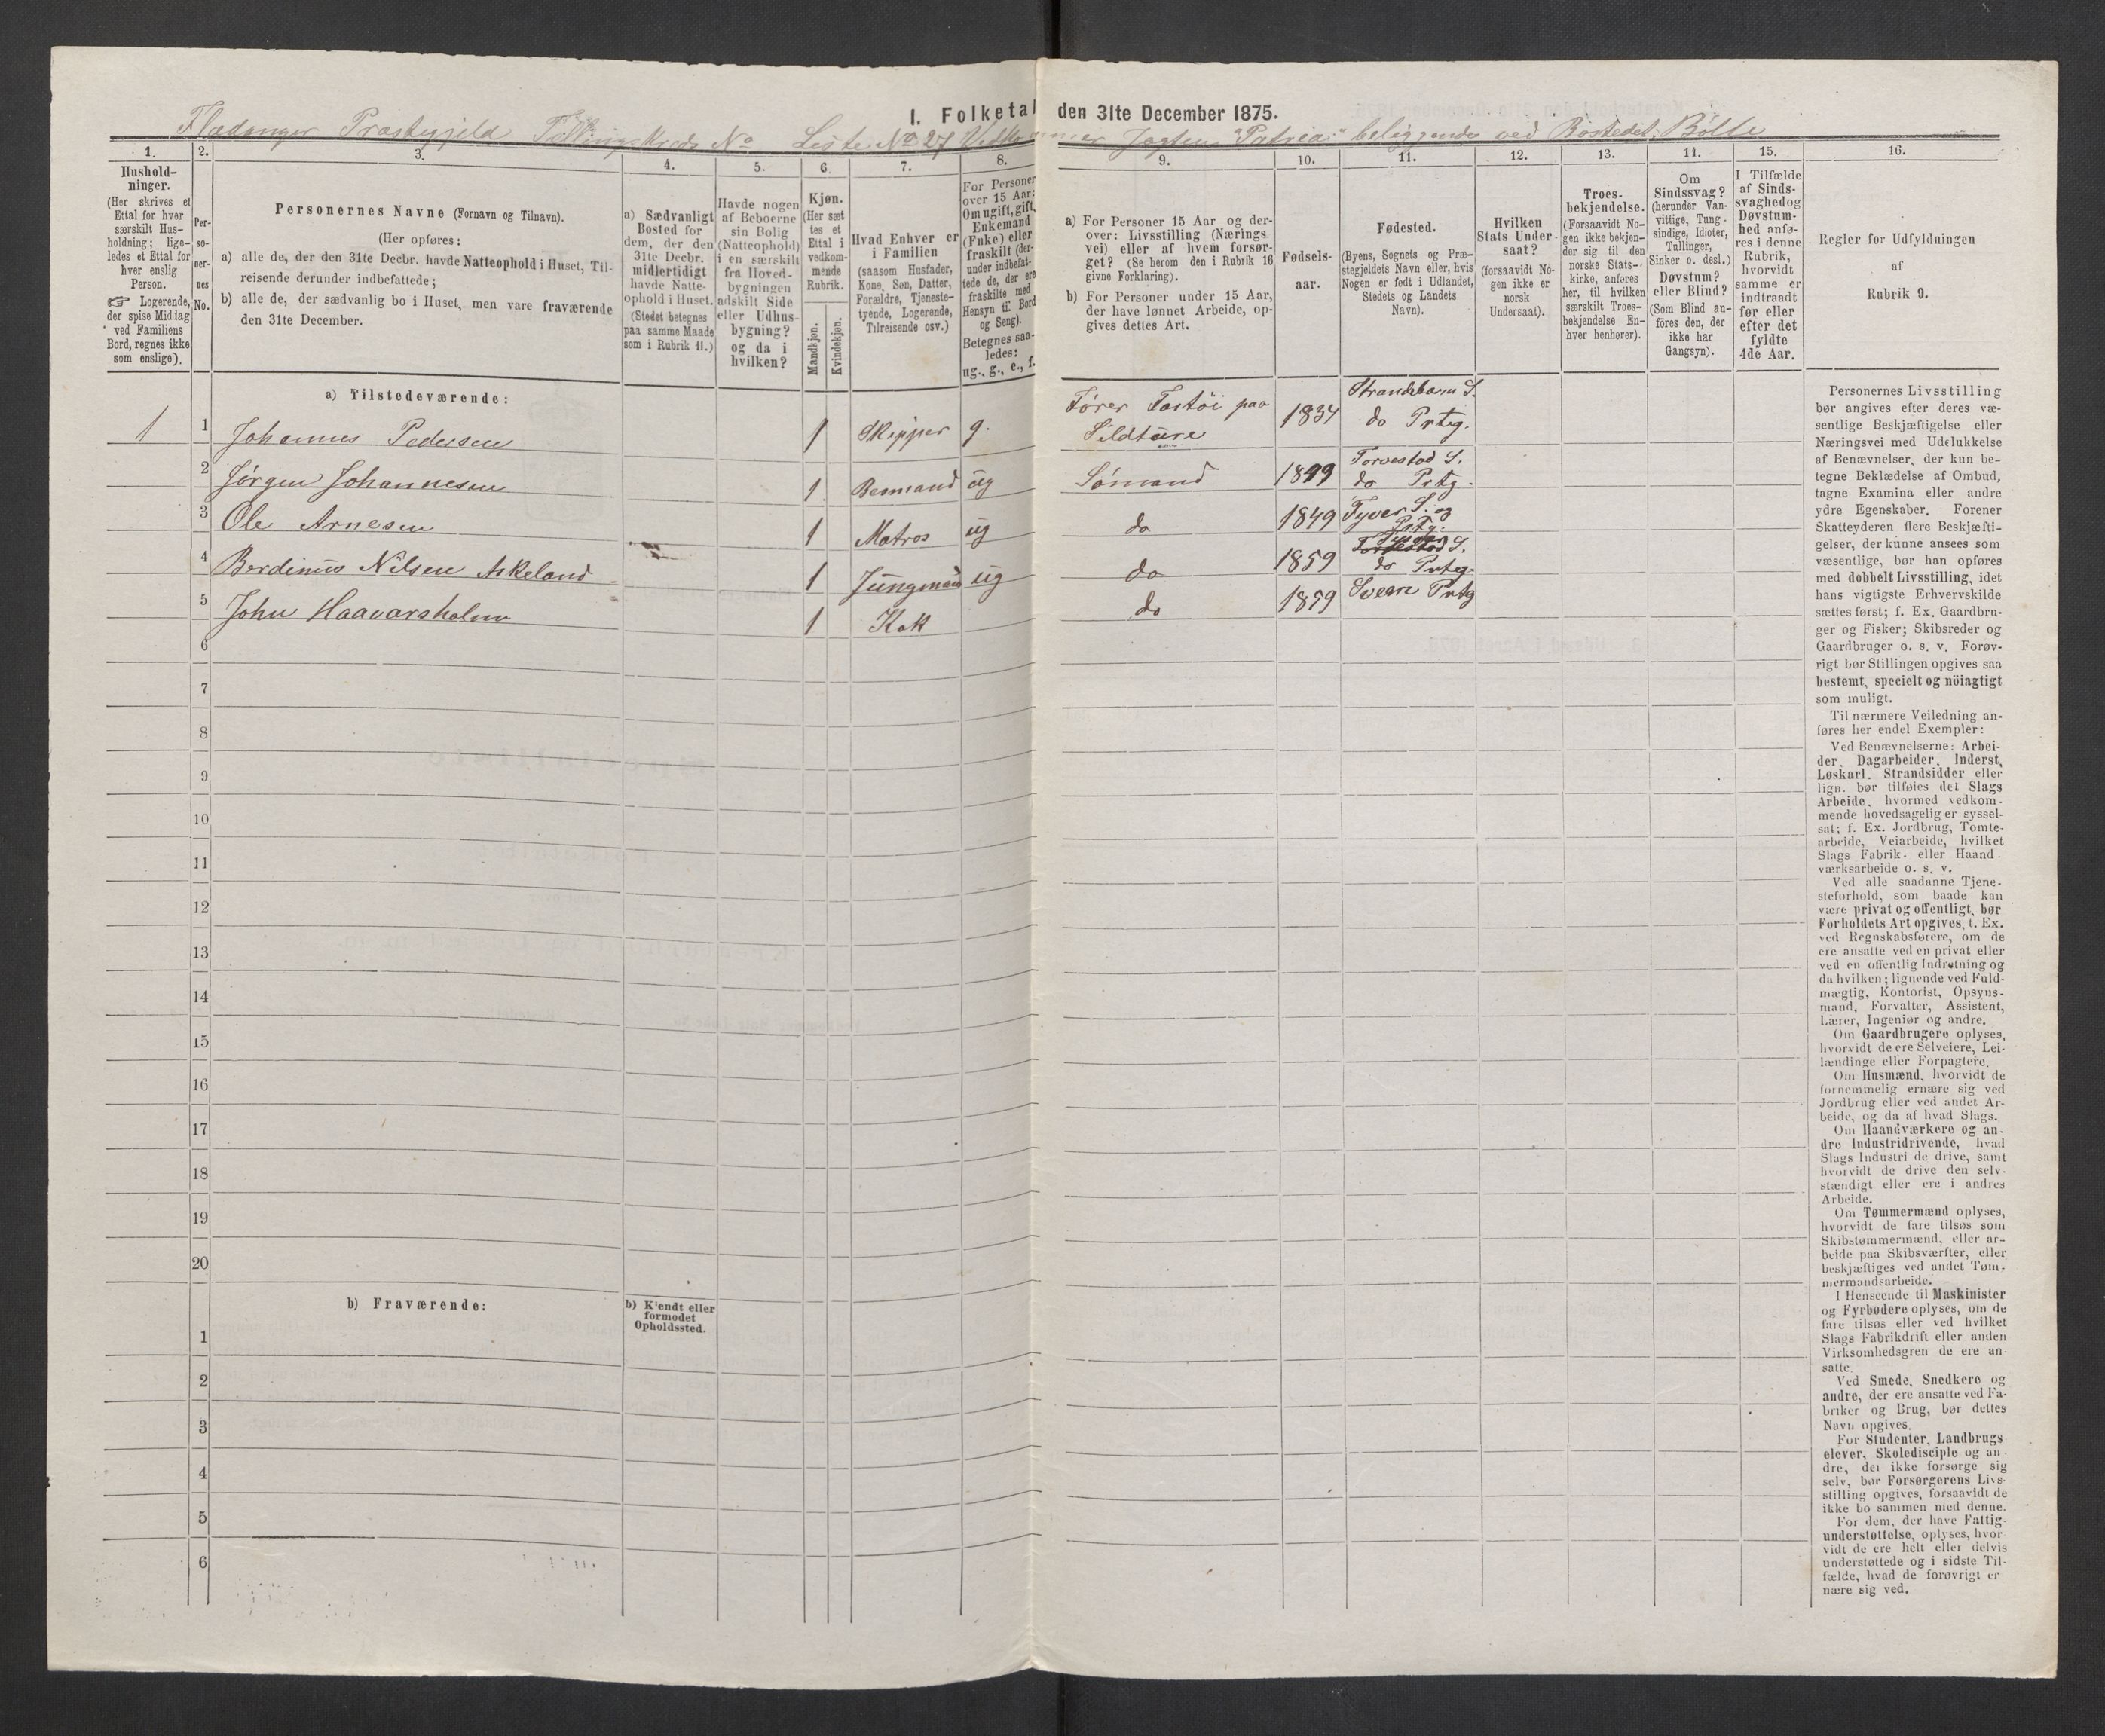 I. Folketal den 31te December 1875.
Fladanger Præstegjeld Tællingskreds No Liste No 27 Vedkommer Jagten "Patria" beliggende ved Bostedet: Bölle
1.
Hushold-
ninger.
(Her skrives et
Ettal for hver
særskilt Hus-
holdning; lige-
ledes et Ettal for
hver enslig
Person.
☞ Logerende,
der spise Middag
ved Familiens
Bord, regnes ikke
som enslige).
2.
Per-
so-
ner-
nes
No.
3.
Personernes Navne (Fornavn og Tilnavn).
(Her opføres:
a) alle de, der den 31te Decbr. havde Natteophold i Huset, Til-
reisende derunder indbefattede;
b) alle de, der sædvanlig bo i Huset, men vare fraværende
den 31te December.
4.
a) Sædvanligt
Bosted for
dem, der den
31te Decbr.
midlertidigt
havde Natte-
ophold i Huset.
(Stedet betegnes
paa samme Maade
som i Rubrik 11.)
5.
Havde nogen
af Beboerne
sin Bolig
(Natteophold)
i en særskilt
fra Hoved-
bygningen
adskilt Side
eller Udhus-
bygning?
og da i
hvilken?
6.
Kjøn.
(Her sæt
tes et
Ettal i
vedkom-
mende
Rubrik.
Mandkjøn.
Kvindekjøn.
7.
Hvad Enhver er
i Familien
(saasom Husfader,
Kone, Søn, Datter,
Forældre, Tjeneste-
tyende, Logerende,
Tilreisende osv.)
8.
For Personer
over 15 Aar:
Om ugift, gift,
Enkemand
(Enke) eller
fraskilt (der-
under indbefat-
tede de, der ere
fraskilte med
Hensyn til Bord
og Seng).
Betegnes saa-
ledes:
ug., g., e., f.
9.
a) For Personer 15 Aar og der-
over: Livsstilling (Nærings
vei) eller af hvem forsør-
get? (Se herom den i Rubrik 16
givne Forklaring).
b) For Personer under 15 Aar,
der have lønnet Arbeide, op-
gives dettes Art.
10.
Fødsels-
aar.
11.
Fødested.
(Byens, Sognets og Præ-
stegjeldets Navn eller, hvis
Nogen er født i Udlandet,
Stedets og Landets
Navn).
12.
Hvilken
Stats Under-
saat?
(forsaavidt No-
gen ikke er
norsk
Undersaat).
13.
Troes-
bekjendelse.
(Forsaavidt No-
gen ikke bekjen-
der sig til den
norske Stats-
kirke, anføres
her, til hvilken
særskilt Troes-
bekjendelse En-
hver henhører).
14.
Om
Sindssvag?
(herunder Van-
vittige, Tung-
sindige, Idioter,
Tullinger,
Sinker o. desl.)
Døvstum?
eller Blind?
(Som Blind an-
föres den, der
ikke har
Gangsyn).
15.
I Tilfælde
af Sinds-
svaghed og
Døvstum-
hed anfø-
res i denne
Rubrik,
hvorvidt
samme er
indtraadt
før eller
efter det
fyldte
4de Aar.
16.
Regler for Udfyldningen
af
Rubrik 9.
a) Tilstedeværende:
1 1 Johannes Pedersen 1 Skipper g. Fører Fartöi paa Sildture 1834 Strandebarm S. do Prteg.
2 Jörgen Johannesen 1 Besmand üg Sömand 1849 Torvestad S. do Prtg.
3 Ole Arnesen 1 Matros üg do 1849 S. og Prtg.
4 Berdinüs Nilsen Askeland 1 Jüngmand üg do 1859 S. do Prteg.
5 John Haavarsholm 1 Kok do 1859 Sveen Prtg
6
7
8
9
10
11
12
13
14
15
16
17
18
19
20
b) Fraværende:
b) Kjendt eller
formodet
Opholdssted.
1
2
3
4
5
6
Personernes Livsstilling
bør angives efter deres væ-
sentlige Beskjæftigelse eller
Næringsvei med Udelukkelse
af Benævnelser, der kun be-
tegne Beklædelse af Ombud,
tagne Examina eller andre
ydre Egenskaber. Forener
Skatteyderen flere Beskjæfti-
gelser, der kunne ansees som
væsentlige, bør han opføres
med dobbelt Livsstilling, idet
hans vigtigste Erhvervskilde
sættes først; f. Ex. Gaardbru-
ger og Fisker; Skibsreder og
Gaardbruger o. s. v. Forøv-
rigt bør Stillingen opgives saa
bestemt, specielt og nöiagtigt
som muligt.
Til nærmere Veiledning an-
føres her endel Exempler:
Ved Benævnelserne: Arbei-
der, Dagarbeider, Inderst,
Løskarl, Strandsidder eller
lign. bør tilføies det Slags
Arbeide, hvormed vedkom-
mende hovedsagelig er syssel-
sat; f. Ex. Jordbrug, Tomte-
arbeide, Veiarbeide, hvilket
Slags Fabrik- eller Haand-
værksarbeide o. s. v.
Ved alle saadanne Tjene-
steforhold, som baade kan
være privat og offentligt, bør
Forholdets Art opgives, t. Ex.
ved Regnskabsførere, om de
ere ansatte ved en privat eller
ved en offentlig Indretning og
da hvilken; lignende ved Fuld-
mægtig, Kontorist, Opsyns-
mand, Forvalter, Assistent,
Lærer, Ingeniør og andre.
Om Gaardbrugere oplyses,
hvorvidt de ere Selveiere, Lei-
lændinge eller Forpagtere.
Om Husmænd, hvorvidt de
fornemmelig ernære sig ved
Jordbrug eller ved andet Ar-
beide, og da af hvad Slags.
Om Haandværkere og an-
dre Industridrivende, hvad
Slags Industri de drive, samt
hvorvidt de drive den selv-
stændigt eller ere i andres
Arbeide.
Om Tømmermænd oplyses,
hvorvidt de fare tilsøs som
Skibstømmermænd, eller ar-
beide paa Skibsværfter, eller
beskjæftiges ved andet Tøm-
mermandsarbeide.
I Henseende til Maskinister
og Fyrbødere oplyses, om de
fare tilsøs eller ved hvilket
Slags Fabrikdrift eller anden
Virksomhedsgren de ere an-
satte.
Ved Smede, Snedkere og
andre, der ere ansatte ved Fa-
briker og Brug, bør dettes
Navn opgives.
For Studenter, Landbrugs
elever, Skoledisciple og an-
dre, der ikke forsørge sig
selv, bør Forsørgerens Livs-
stilling opgives, forsaavidt de
ikke bo sammen med denne.
For dem, der have Fattig-
understøttelse, oplyses, hvor-
vidt de ere helt eller delvis
understøttede og i sidste Til-
fælde, hvad de forøvrigt er-
nære sig ved.